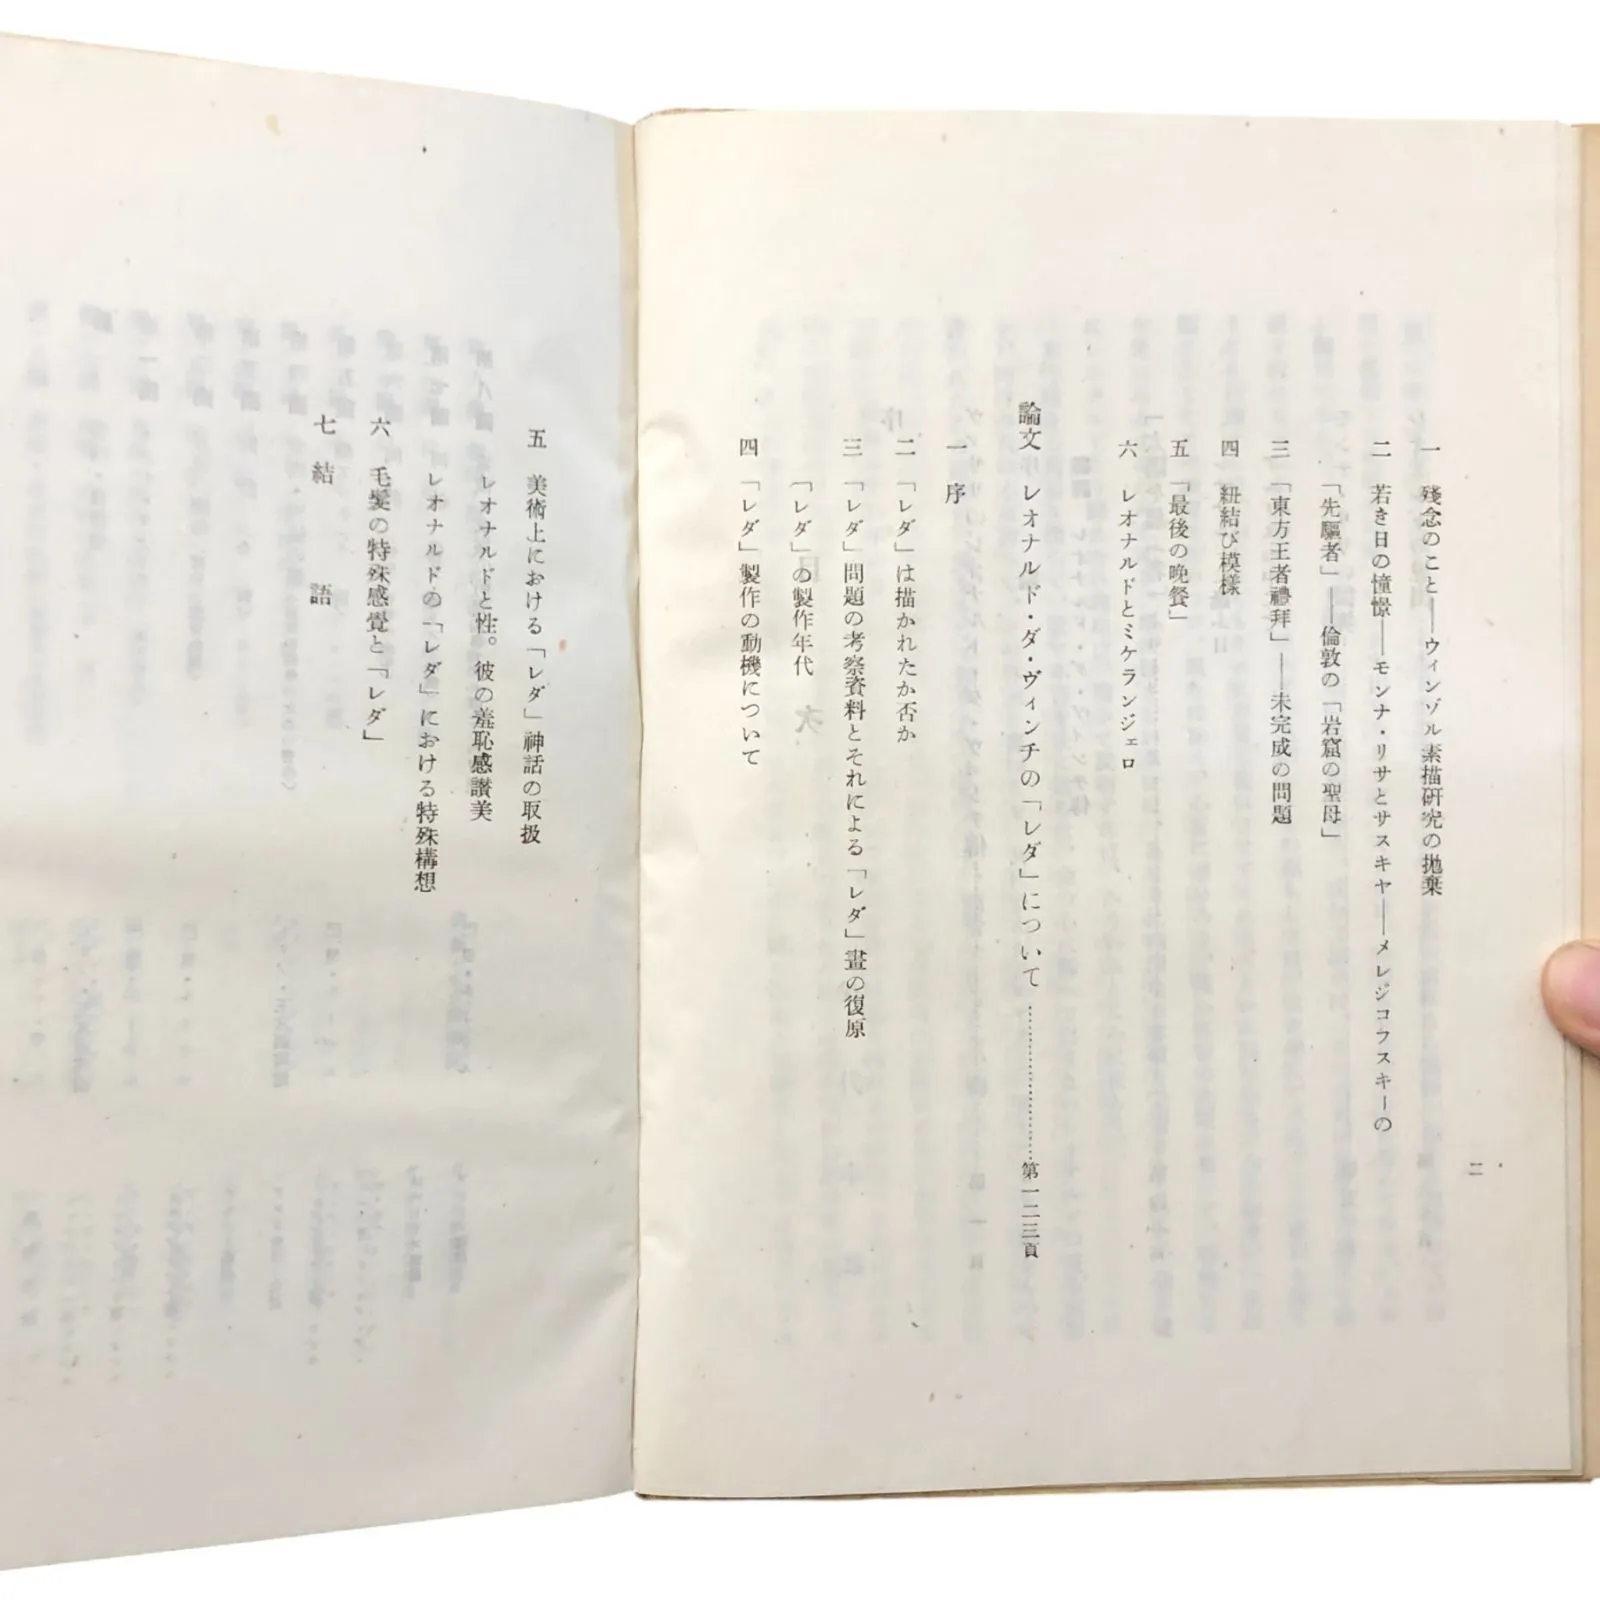 二
一 殘念のこと——ウィンゾル素描研究の抛棄
二 若き日の憧憬——モンナ・リサとサスキヤ——メレジコフスキーの
「先驅者」——倫敦の「岩窟の聖母」
三 「東方王者禮拜」——未完成の問題
四 紐結び模樣
五 「最後の晩餐」
六 レオナルドとミケランジェロ
論文 レオナルド・ダ・ヴィンチの「レダ」について……………………第一二三頁
一 序
二 「レダ」は描かれたか否か
三 「レダ」問題の考察資料とそれによる「レダ」畫の復原
「レダ」の製作年代
四 「レダ」製作の動機について
五 美術上における「レダ」神話の取扱
レオナルドと性。彼の羞恥感讃美
レオナルドの「レダ」における特殊構想
六 毛髪の特殊感覺と「レダ」
七 結語